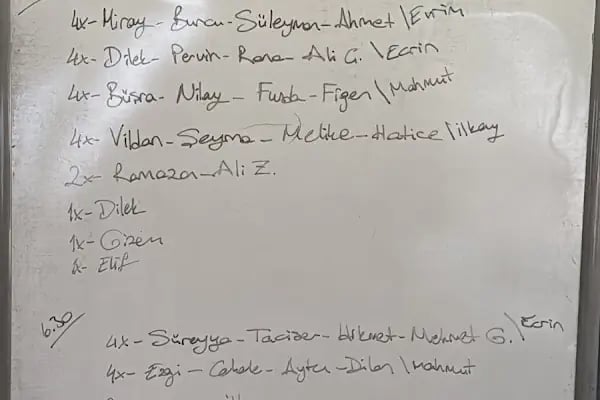 4x- Miray - Burcu - Süleyman - Ahmet \ Evrim
4x- Dilek - Pervin - Rana - Ali G. \ Ecrin
4x- Büşra - Nilay - Funda - Figen \ Mahmut
4x- Vildan - Şeyma - Melike - Hatice \ ilkay
2x- Ramazan - Ali Z.
1x- Dilek
1x- Gizem
1x- Elif
6.30/
4x- Süreyya - Taciser - Hikmet - Mehmet G. \ Ecrin
4x- Ezgi - - Ayten - Dilan \ Mahmut